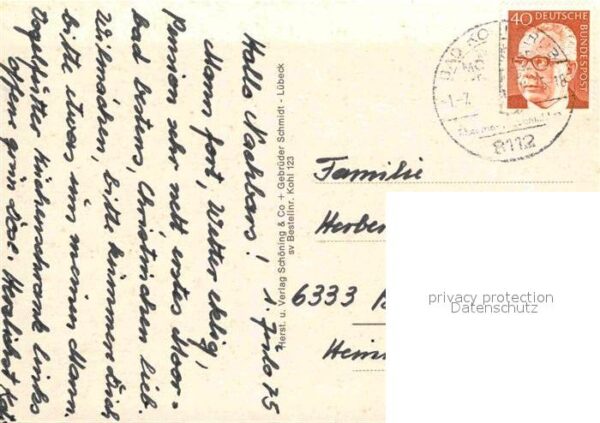 Hallo Nachbars! 1. Julo 75
Mann fort, Wetter eklig,
Pension sehr nett erstes Moor-
bad bestens, Christinchen lieb.
Würmchen, bitte kümmert Euch
bitte etwas um meinen Mann.
Vogelfutter Küchenschrank links
offene grün Dose. Herzlichst Kat.
Herst. u. Verlag Schöning & Co + Gebrüder Schmidt - Lübeck
sv Bestellnr. Kohl 123
40 DEUTSCHE BUNDESPOST
8112
Familie
Herber
6333
Hein
privacy protection
Datenschutz